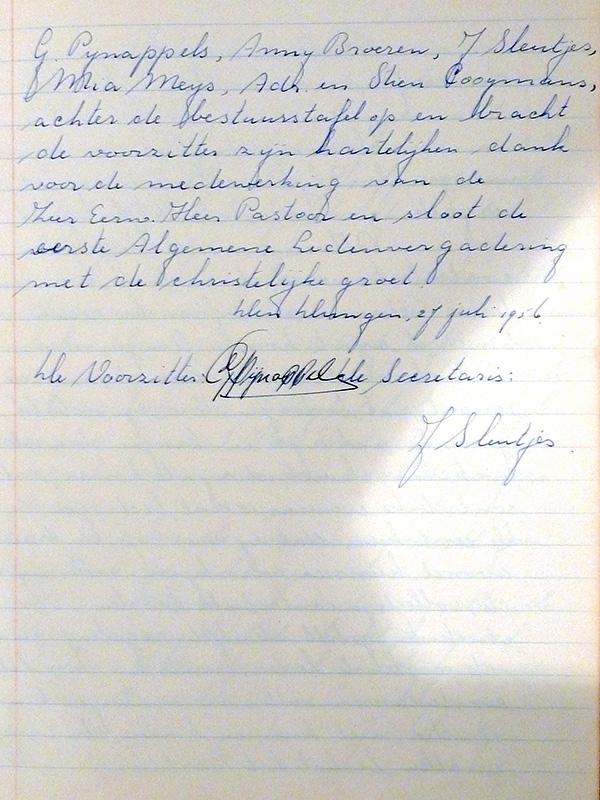 G. Pynappels, Anny Broeren, J Sleutjes,
Mia Meys, Adr. en Sien Cooymans,
achter de bestuurstafel op en bracht
de voorzitter zijn hartelijken dank
voor de medewerking van de
Zeer Eerw. Heer Pastoor en sloot de
eerste Algemene Ledenvergadering
met de christelijke groet.
Den Dungen, 27 juli 1956.
De Voorzitter: GPijnappels de Secretaris:
J Sleutjes.